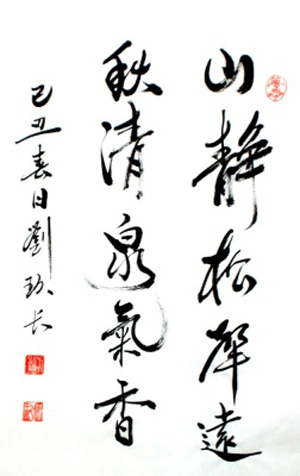 山靜松聲遠
秋清泉氣香
己丑春日劉玖长